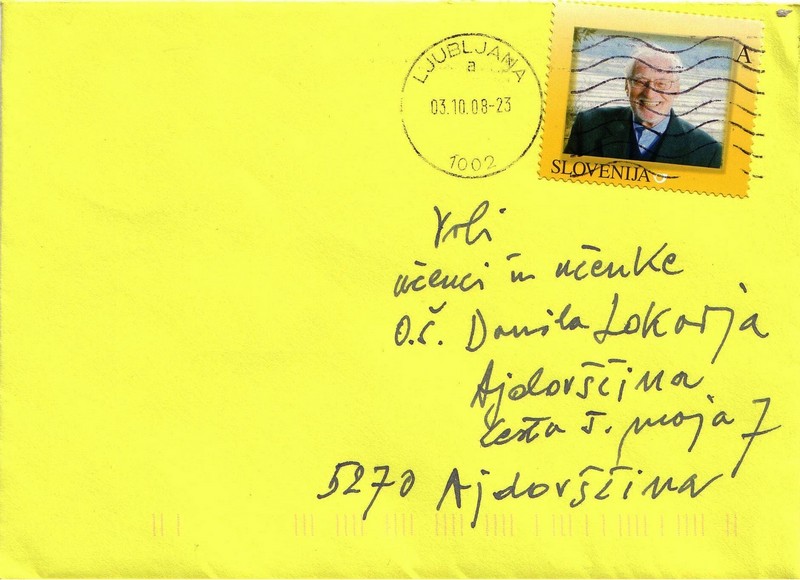 LJUBLJANA
a
03.10.08-23
1002
A
SLOVENIJA
Vrli
učenci in učenke
O.Š. Danila Lokarja
Ajdovščina
Cesta 5. maja 7
5270 Ajdovščina